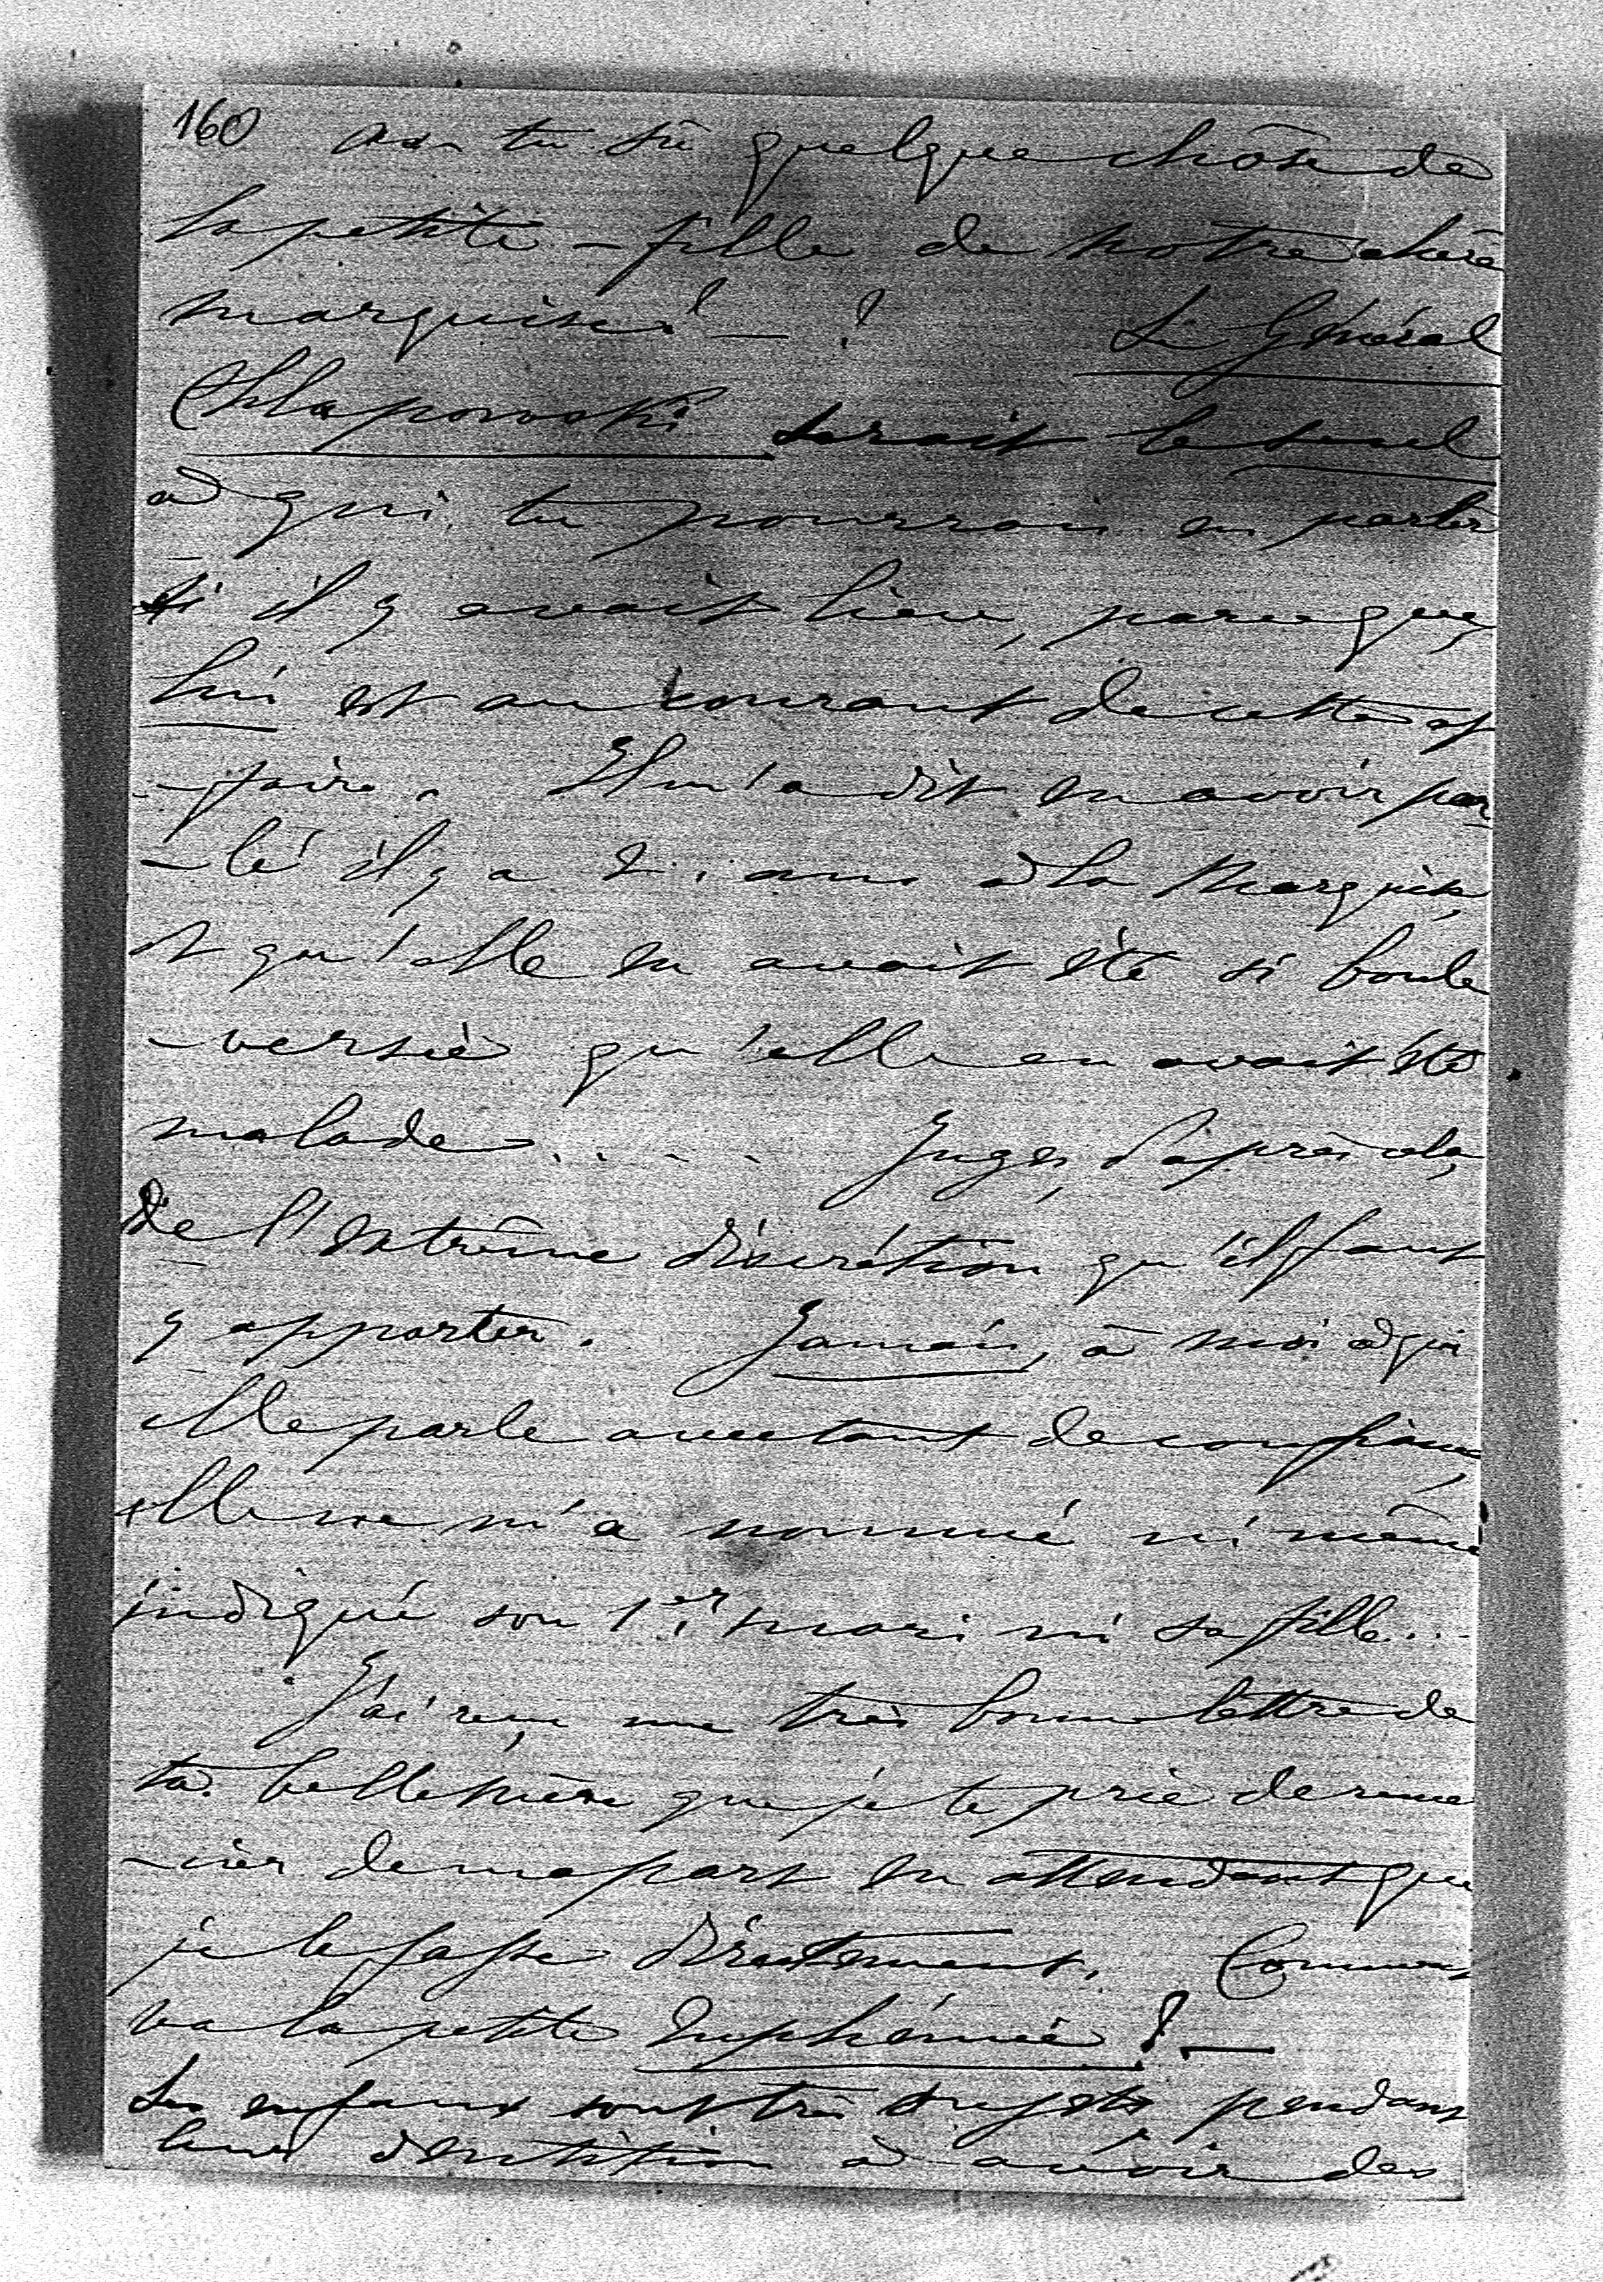 160 As-tu sû quelque chôse de
la petite-fille de notre chère
marquise ! — ? Le Général
Chlapowski serait le seul
à qui tu pourrais en parler
si il y avait lieu, parceque,
lui est au courant de cette af
-faire. Il m'a dit en avoir par
-lé il y a 2. ans à la Marquise,
et qu'elle en avait été si boule
-versée qu'elle en avait été
malade..... Juges, d'après cela,
de l'extrême discrétion qu'il faut
y apporter. Jamais, à moi à qui
elle parle avec tant de confiance,
elle ne m'a nommé ni même
indiqué son 1er mari ni sa fille...
J'ai reçu une très bonne lettre de
ta belle mère que je te prie de remer
-cier de ma part en attendant que
je le fasse directement. Comment
va la petite Euphémie ? —
Les enfants sont très sujets, pendant
leur dentition à avoir des